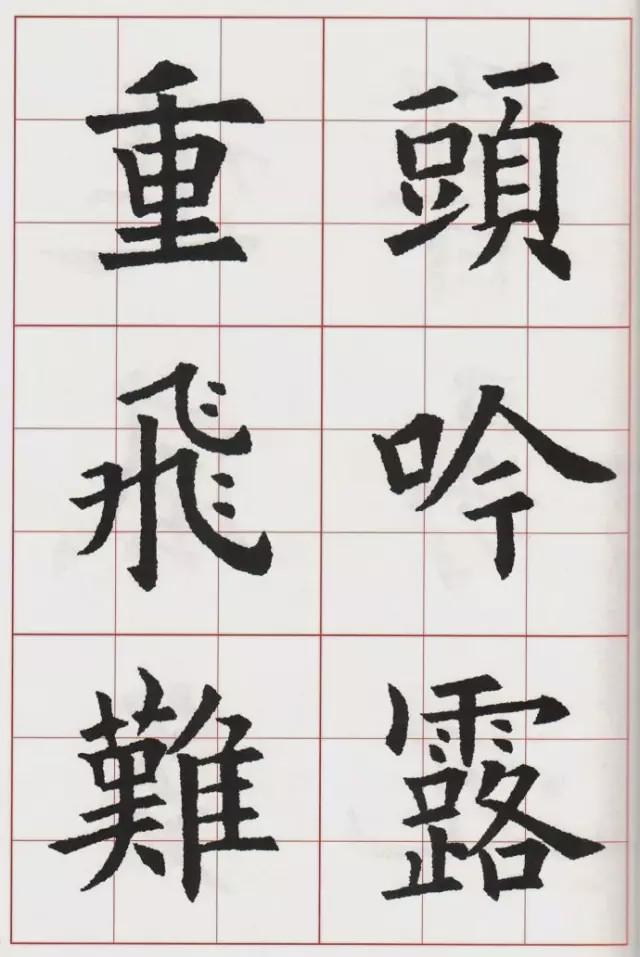 頭吟露
重飛難